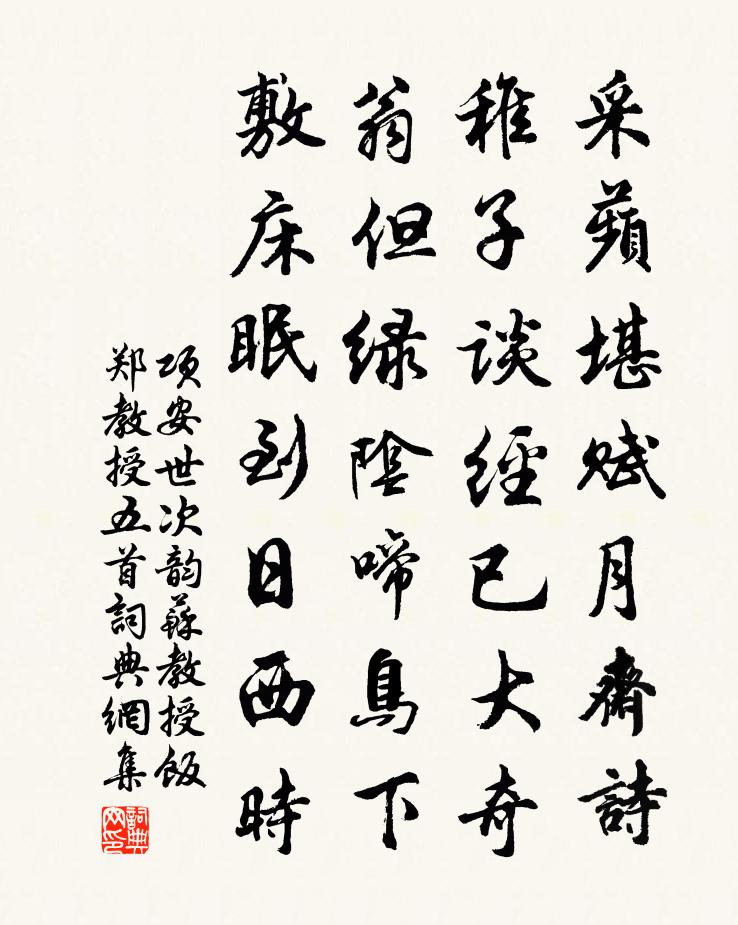 采蘋堪赋月齋詩
稚子談經已大奇
翁但绿陰啼鳥下
敷床眠到日西時
项安世次韵蘇教授飯
郑教授五首詞典網集
詞典
网印